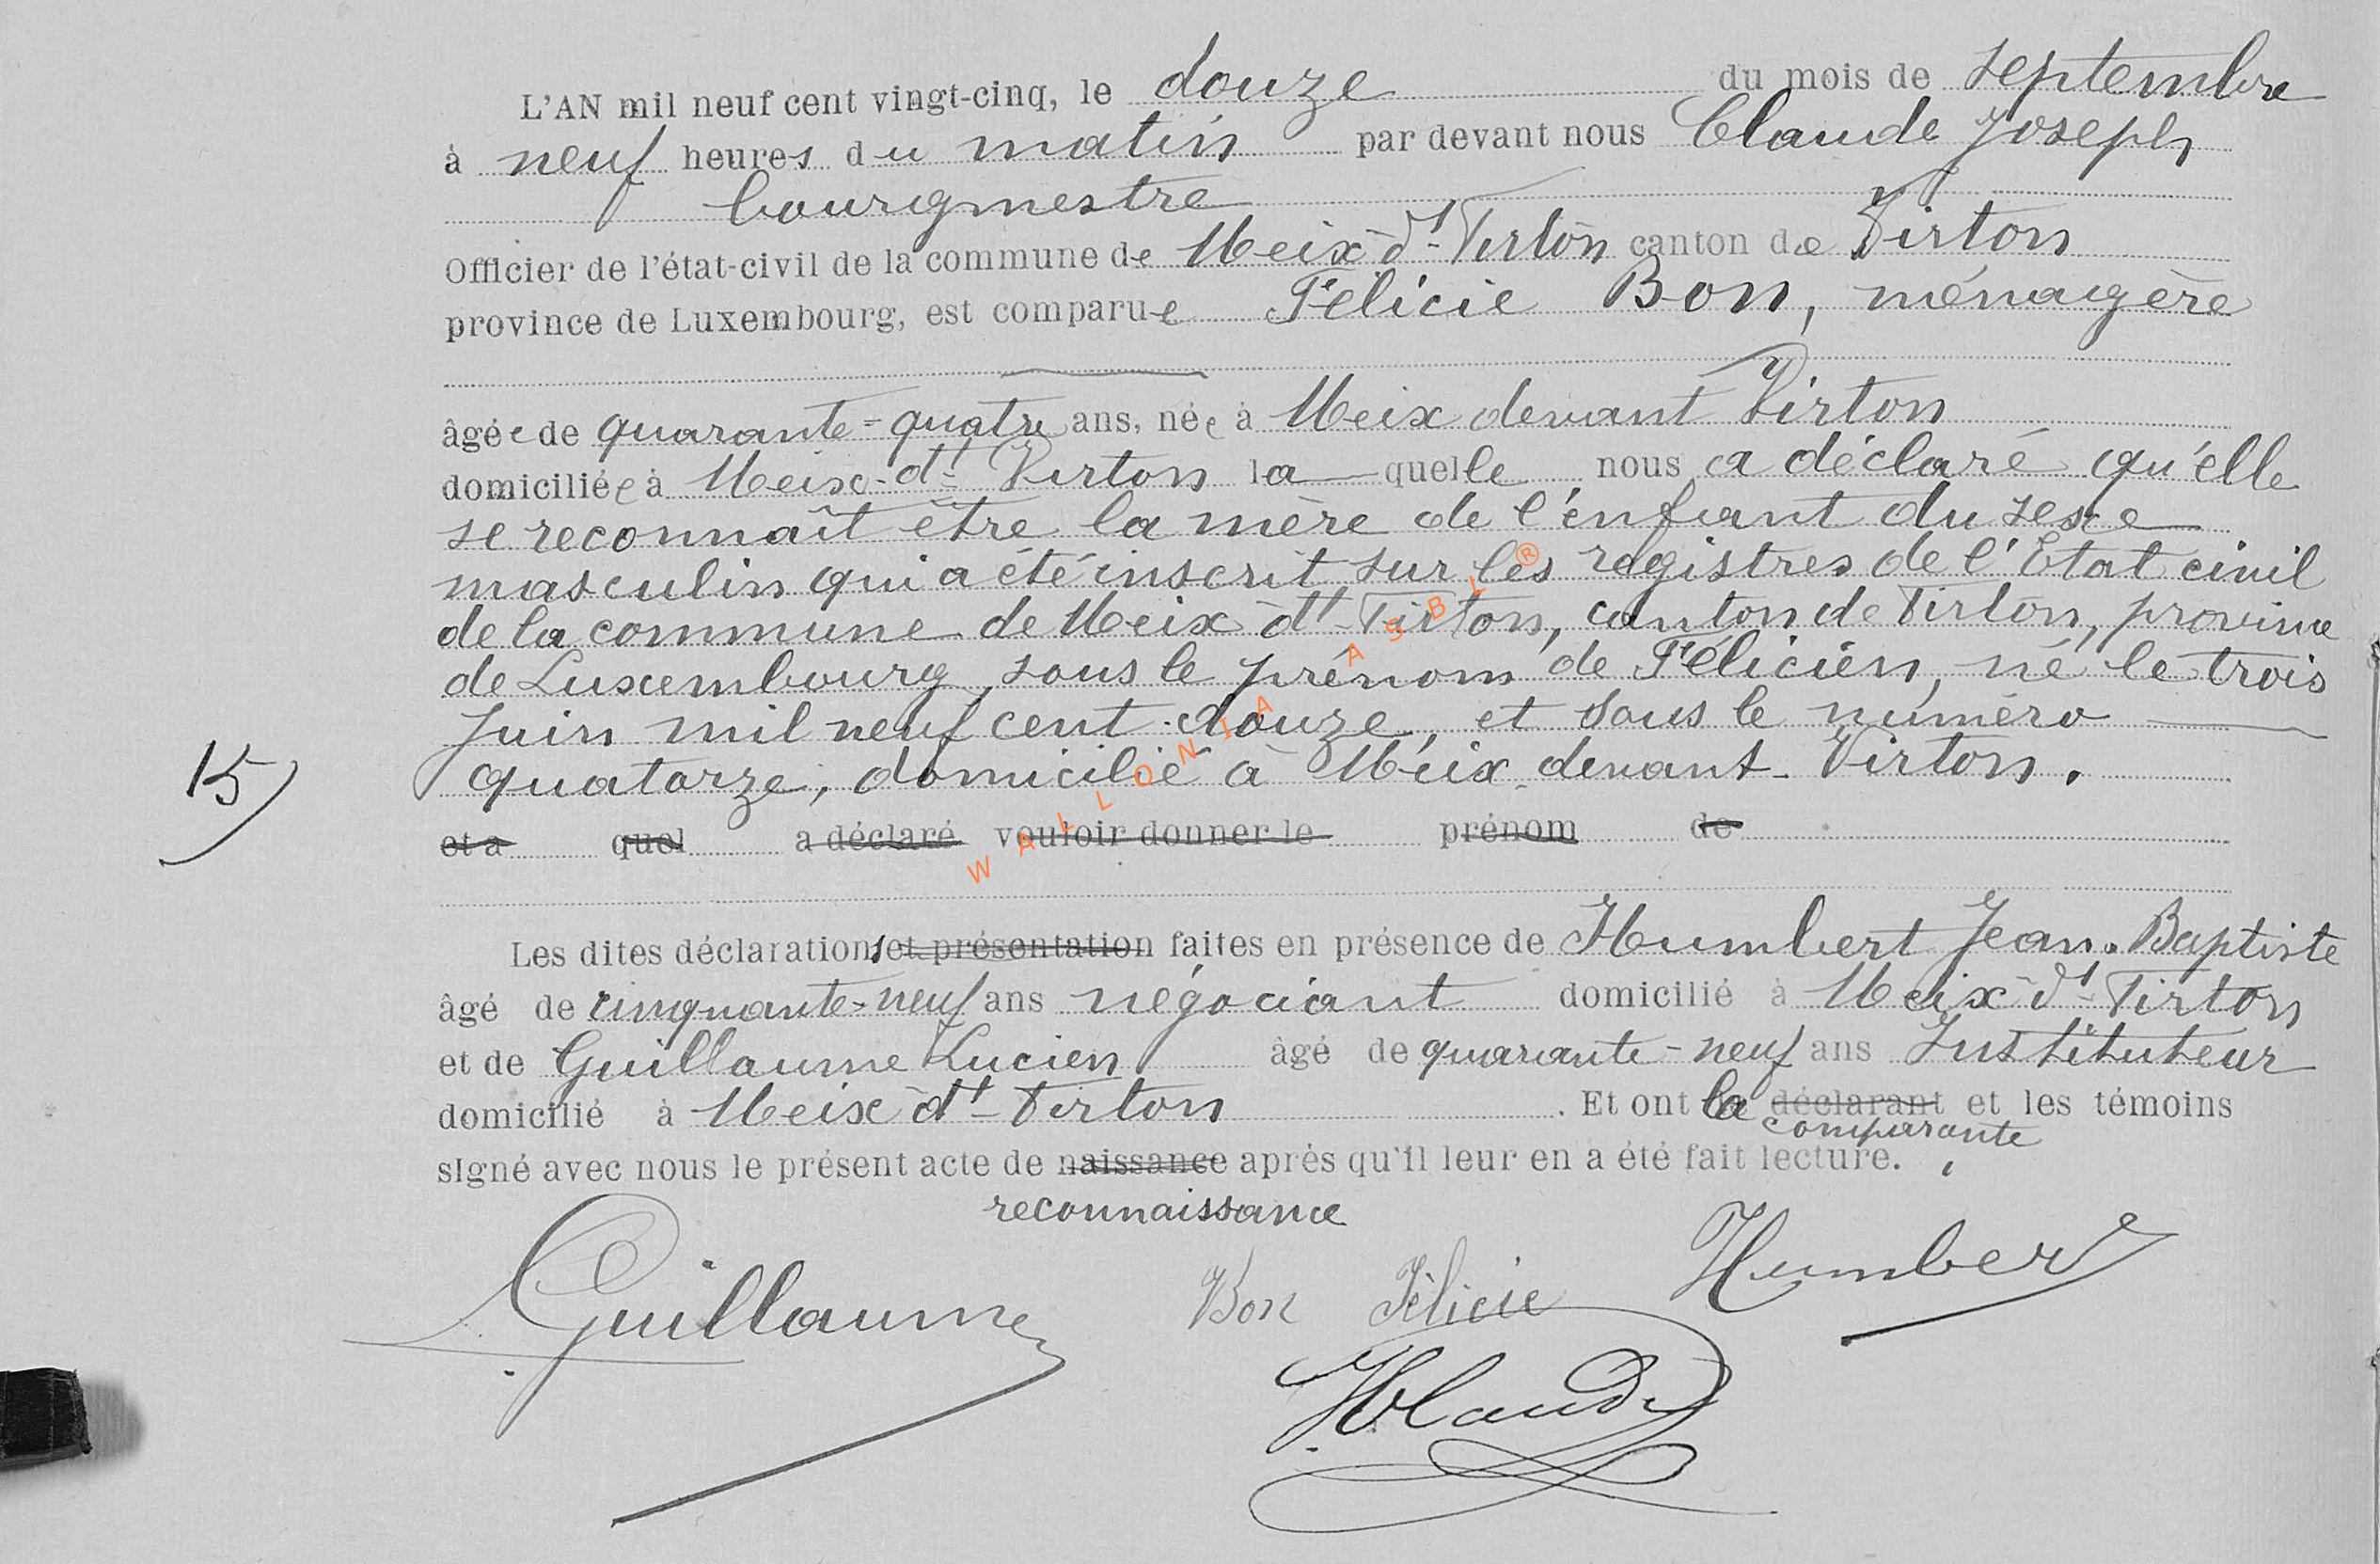 L'AN mil neuf cent vingt-cinq, le douze du mois de septembre
à neuf heures du matin par devant nous Claude Joseph
bourgmestre
Officier de l'état-civil de la commune de Meix-dt-Virton canton de Virton
province de Luxembourg, est comparue Félicie Bon, ménagère
âgée de quarante-quatre ans, née à Meix devant Virton
domiciliée à Meix-dt-Virton laquelle nous a déclaré qu'elle
se reconnaît être la mère de l'enfant du sexe
masculin qui a été inscrit sur les registres de l'Etat civil
de la commune de Meix dt-Virton, canton de Virton, province
de Luxembourg, sous le prénom de Félicien, né le trois
Juin mil neuf cent douze, et sous le numéro
15) quatorze, domicilié à Meix devant-Virton.
et a quel a déclaré vouloir donner le prénom de
Les dites déclarations et présentation faites en présence de Humbert Jean-Baptiste
âgé de cinquante-neuf ans négociant domicilié à Meix-dt-Virton
et de Guillaume Lucien âgé de quarante-neuf ans Instituteur
domicilié à Meix dt-Virton. Et ont la déclarant et les témoins
comparante
signé avec nous le présent acte de naissance après qu'il leur en a été fait lecture.
reconnaissance
Guillaume Bon Félicie Humbert
JClaude
WALLONIA ASBL ®